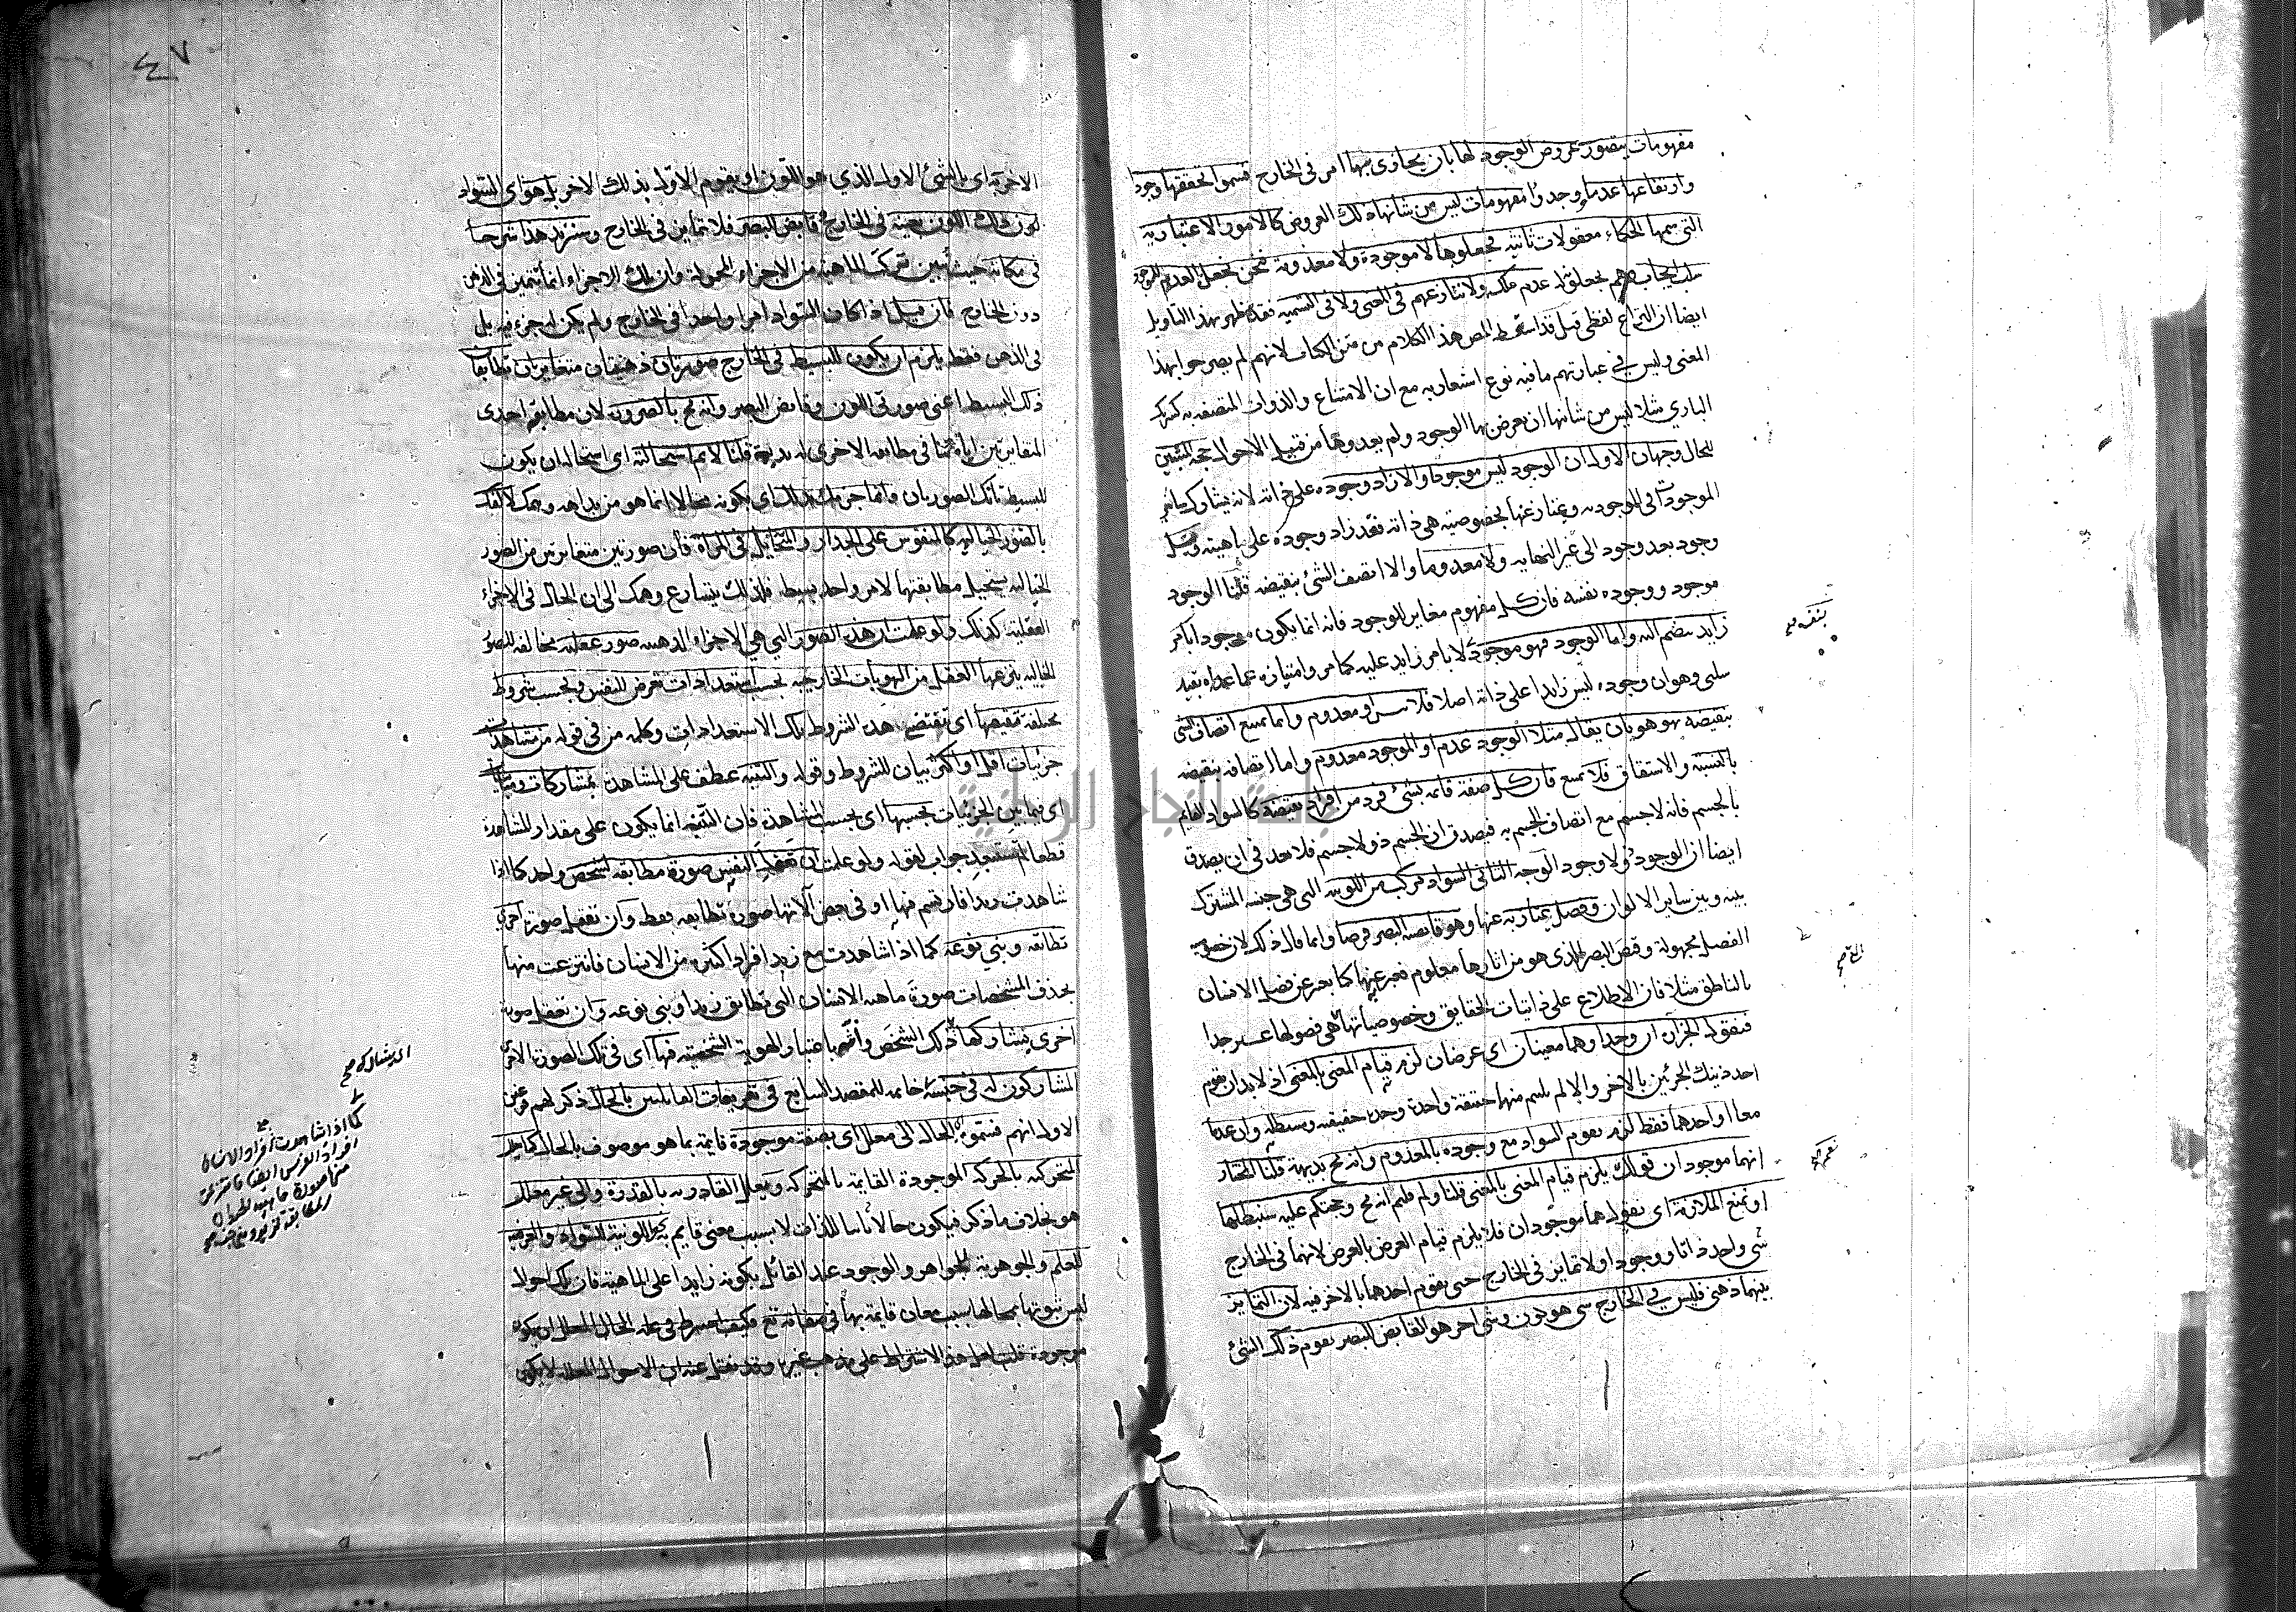 مفهومات يتصور عروض الوجود لها بان يحاذى بها امر فى الخارج فسموا تحققها وجودا
وارتفاعها عدما ووجدوا مفهومات ليس من شانها ذلك العروض كالامور الاعتبارية
التى يسميها الحكماء معقولات ثانية فجعلوها لا موجودة ولا معدومة فنحن نجعل العدم للوجود
سلب ايجاب وهم يجعلونه عدم ملكة ولا ننازعهم فى المعنى ولا فى التسمية فقد ظهر بهذا التاويل
ايضا ان النزاع لفظى قيل قد اسقط المص هذا الكلام من متن الكتاب لانهم لم يصرحوا بهذا
المعنى وليس فى عبارتهم ما فيه نوع اشعار به مع ان الامتناع والذوات المتصفة به كشريك
البارى مثلا ليس من شانها ان يعرض لها الوجود ولم يعدوهما من قبيل الاحوال حجة المثبتين
للحال وجهان الاول ان الوجود ليس موجودا والا زاد وجوده على ذاته لانه يشارك سائر
الموجودات فى الموجودية ويمتاز عنها بخصوصية هى ذاته فقد زاد وجوده على ماهيته وتسلسل
وجود بعد وجود الى غير النهاية ولا معدوما والا اتصف الشئ بنقيضه قلنا الوجود
موجود ووجوده نفسه فان كل مفهوم مغاير للوجود فانه انما يكون موجودا بامر
زايد ينضم اليه واما الوجود فهو موجود لا بامر زايد عليه كما مر وامتيازه عما عداه بقيد
سلبى وهو ان وجوده ليس زايدا على ذاته اصلا فلا تسلسل او معدوم وانما يمتنع اتصاف الشئ
بنقيضه بهو هو بان يقال مثلا الوجود عدم او الموجود معدوم واما اتصافه بنقيضه
بالنسبة والاشتقاق فلا يمتنع فان كل صفة قائمة بشئ فرد من افراد نقيضه كالسواد القايم
بالجسم فانه لا جسم مع اتصاف الجسم به فيصدق ان الجسم ذو لا جسم فلا بعد فى ان يصدق
ايضا ان الوجود ذو لا وجود الوجه الثانى السواد مركب من اللونية التى هى جنسه المشترك
بينه وبين ساير الالوان وفصل يمتاز به عنها وهو قابضية البصر فرضا وانما قال ذلك لان خصوصية
الفصل مجهولة وقبض البصر الذى هو من اثارها معلوم فعبر عنها به كما يعبر عن فصل الانسان
بالناطق مثلا فان الاطلاع على ذاتيات الحقايق وخصوصياتها التى هى فصولها عسر جدا
فنقول الجزآن ان وجدا وهما معنيان اى عرضان لزم قيام المعنى بالمعنى اذ لا بد ان يقوم
احد ذينك الجزئين بالاخر والا لم يلتئم منهما حقيقة واحدة وحدة حقيقية وسنبطله وان عدما
معا او احدهما فقط لزم تقوم السواد مع وجوده بالمعدوم وانه مح بديهة قلنا المختار
انهما موجودان قولك يلزم قيام المعنى بالمعنى قلنا ولم قلتم انه مح وحجتكم عليه سنبطلها
او نمنع الملازمة اى نقول هما موجودان فلا يلزم قيام العرض بالعرض لانهما فى الخارج
شئ واحد ذاتا ووجودا ولا تمايز فى الخارج حتى يقوم احدهما بالاخر فيه لان التمايز
بينهما ذهنى فليس فى الخارج شئ هو لون وشئ اخر هو القابض للبصر يقوم ذلك الشئ
٤٧
الاخر به اى بالشئ الاول الذى هو اللون او يقوم الاول بذلك الاخر بل هو اى السواد
لون ذلك اللون بعينه فى الخارج قابض للبصر فلا تمايز فى الخارج وسنزيد هذا شرحا
فى مكانه حيث نبين تركب الماهية من الاجزاء المحمولة وان تلك الاجزاء انما تتميز فى الذهن
دون الخارج فان قيل اذا كان السواد امرا واحدا فى الخارج ولم يكن له جزء فيه بل
فى الذهن فقط يلزم ان يكون للبسيط فى الخارج صورتان ذهنيتان متغايرتان تطابقان
ذلك البسيط اعنى صورتى اللون وقابض البصر وانه مح بالضرورة لان مطابقة احدى
المتغايرتين اياه تنافى مطابقة الاخرى له بديهة قلنا لا نم استحالته اى استحالة ان يكون
للبسيط تانك الصورتان وانما جزمك بذلك اى بكونه محالا انما هو من بداهة وهمك لالفك
بالصور الخيالية كالنقوش على الجدار والتخاييل فى المرآة فان صورتين متغايرتين من الصور
الخيالية يستحيل مطابقتهما لامر واحد بسيط فلذلك يتسارع وهمك الى ان الحال فى الاجزاء
العقلية كذلك ولو علمت ان هذه الصور التى هى الاجزاء الذهنية صور عقلية مخالفة للصور
الخيالية ينتزعها العقل من الهويات الخارجية بحسب استعدادات تعرض للنفس وبحسب شروط
مختلفة تقتضيها اى تقتضى هذه الشروط تلك الاستعدادات وكلمة من فى قوله من مشاهدة
جزئيات اقل او اكثر بيان للشروط وقوله والتنبه عطف على المشاهدة بمشاركات ومباينات
اى فيما بين الجزئيات بحسبها اى بحسب المشاهدة فان التنبه انما يكون على مقدار المشاهدة
قطعا لم تستبعد جواب لقوله ولو علمت ان تعقل النفس صورة مطابقة لشخص واحد كما اذا
شاهدت زيدا فارتسم فيها او فى بعض آلاتها صورة تطابقه فقط وان تعقل صورة اخرى
تطابقه وبنى نوعه كما اذا شاهدت مع زيد افراد اكثيرة من الانسان فانتزعت منها
بحذف المشخصات صورة ماهية الانسان التى تطابق زيدا وبنى نوعه وان تعقل صورة
اخرى يشاركها ذلك الشخص وانه باعتبار الهوية الشخصية فيها اى فى تلك الصورة الاخرى
المشاركون له فى جنسه خاتمة للمقصد السابع فى تفريعات القائلين بالحال ذكر لهم فرعين
الاول انهم قسموا الحال الى معلل اى بصفة موجودة قايمة بما هو موصوف بالحال كما يعلل
المتحركية بالحركة الموجودة القايمة بالمتحرك ويعلل القادرية بالقدرة والى غير معلل
هو بخلاف ما ذكر فيكون حالا ثابتا للذات لا بسبب معنى قايم به كاللونية للسواد والعرضية
للعلم والجوهرية للجواهر والوجود عند القائل بكونه زايدا على الماهية فان تلك احوال
ليس ثبوتها لمحالها بسبب معان قايمة بها
موجودة قلت لعل هذا الاشتراط على مذهب غيره وقد نقل عنه ان الاحوال المعللة لا يكون
كما اذا شاهدت افراد الانسان
افراد الفرس ايضا فانتزعت
منها صورة ماهية الحيوان